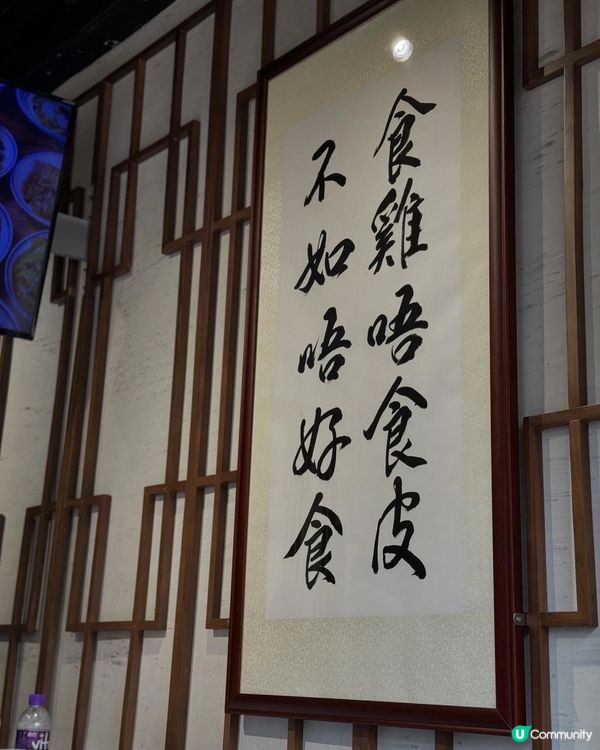 食雞唔食皮
不如唔好食
vit
U Community